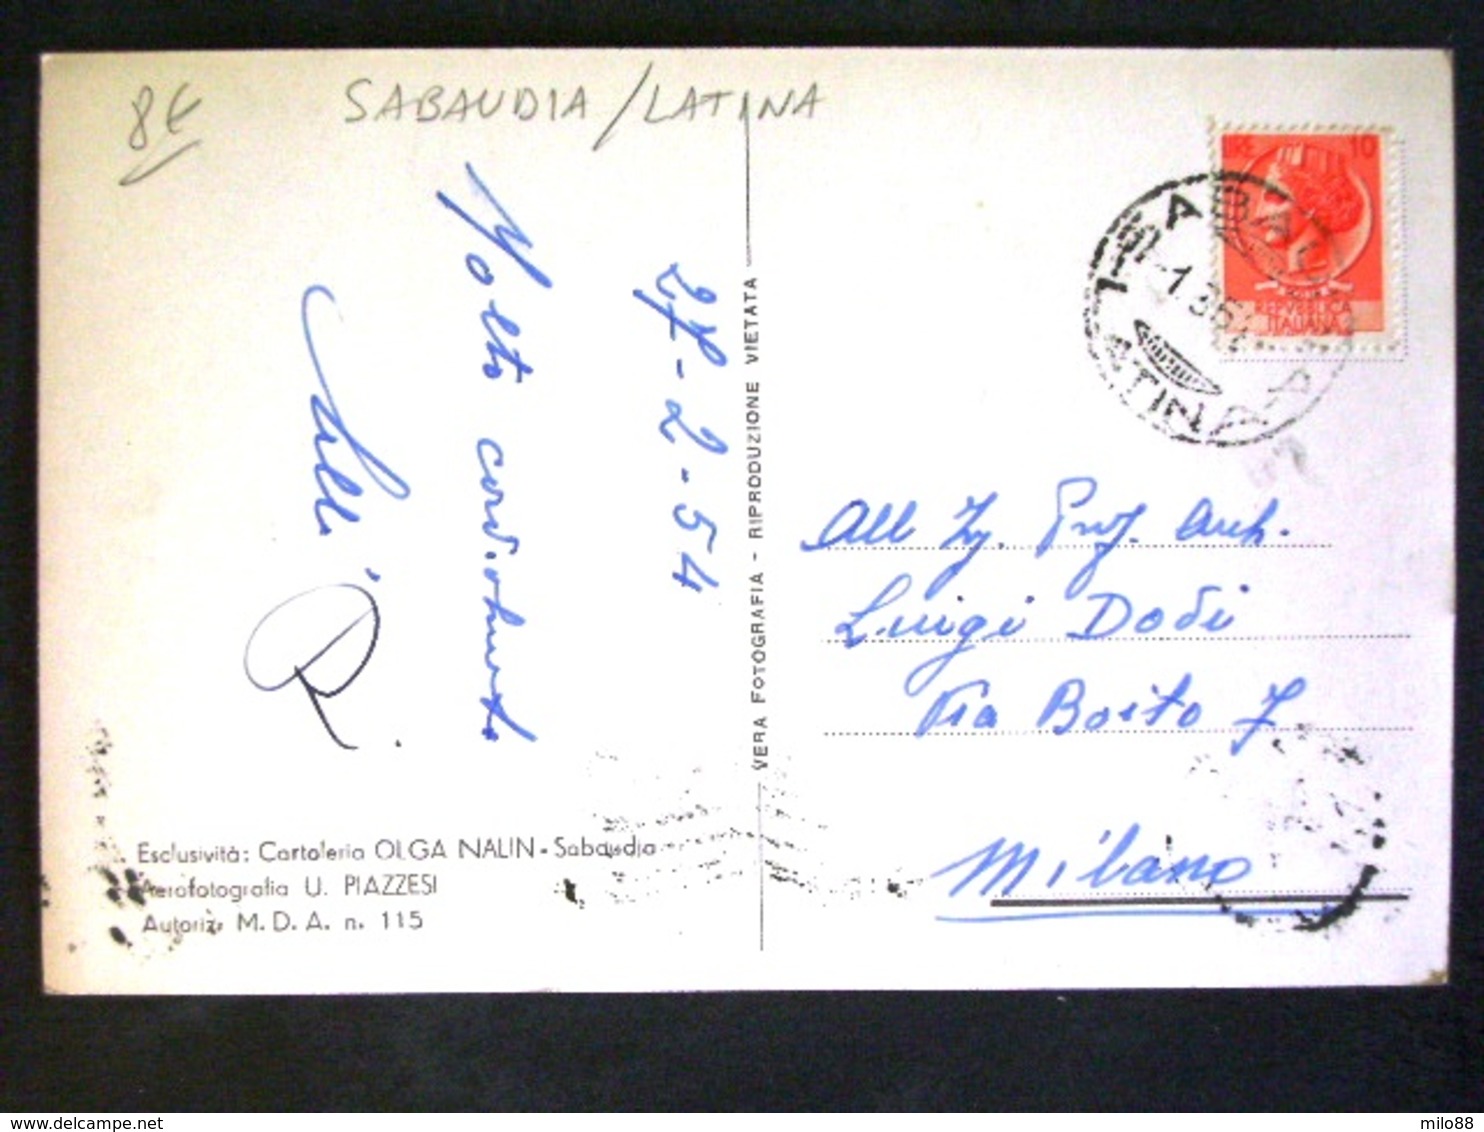 8€
SABAUDIA/LATINA
Molto cordialmente
27-2-54
VERA FOTOGRAFIA - RIPRODUZIONE VIETATA
LIRE 10
REPVBBLICA
ITALIANA
SABAUDIA
LATINA
All Prof. Arch.
Luigi Dodi
Via Boito 7
Milano
Esclusività: Cartoleria OLGA NALIN - Sabaudia
Aerofotografia U. PIAZZESI
Autoriz. M. D. A. n. 115
milo88